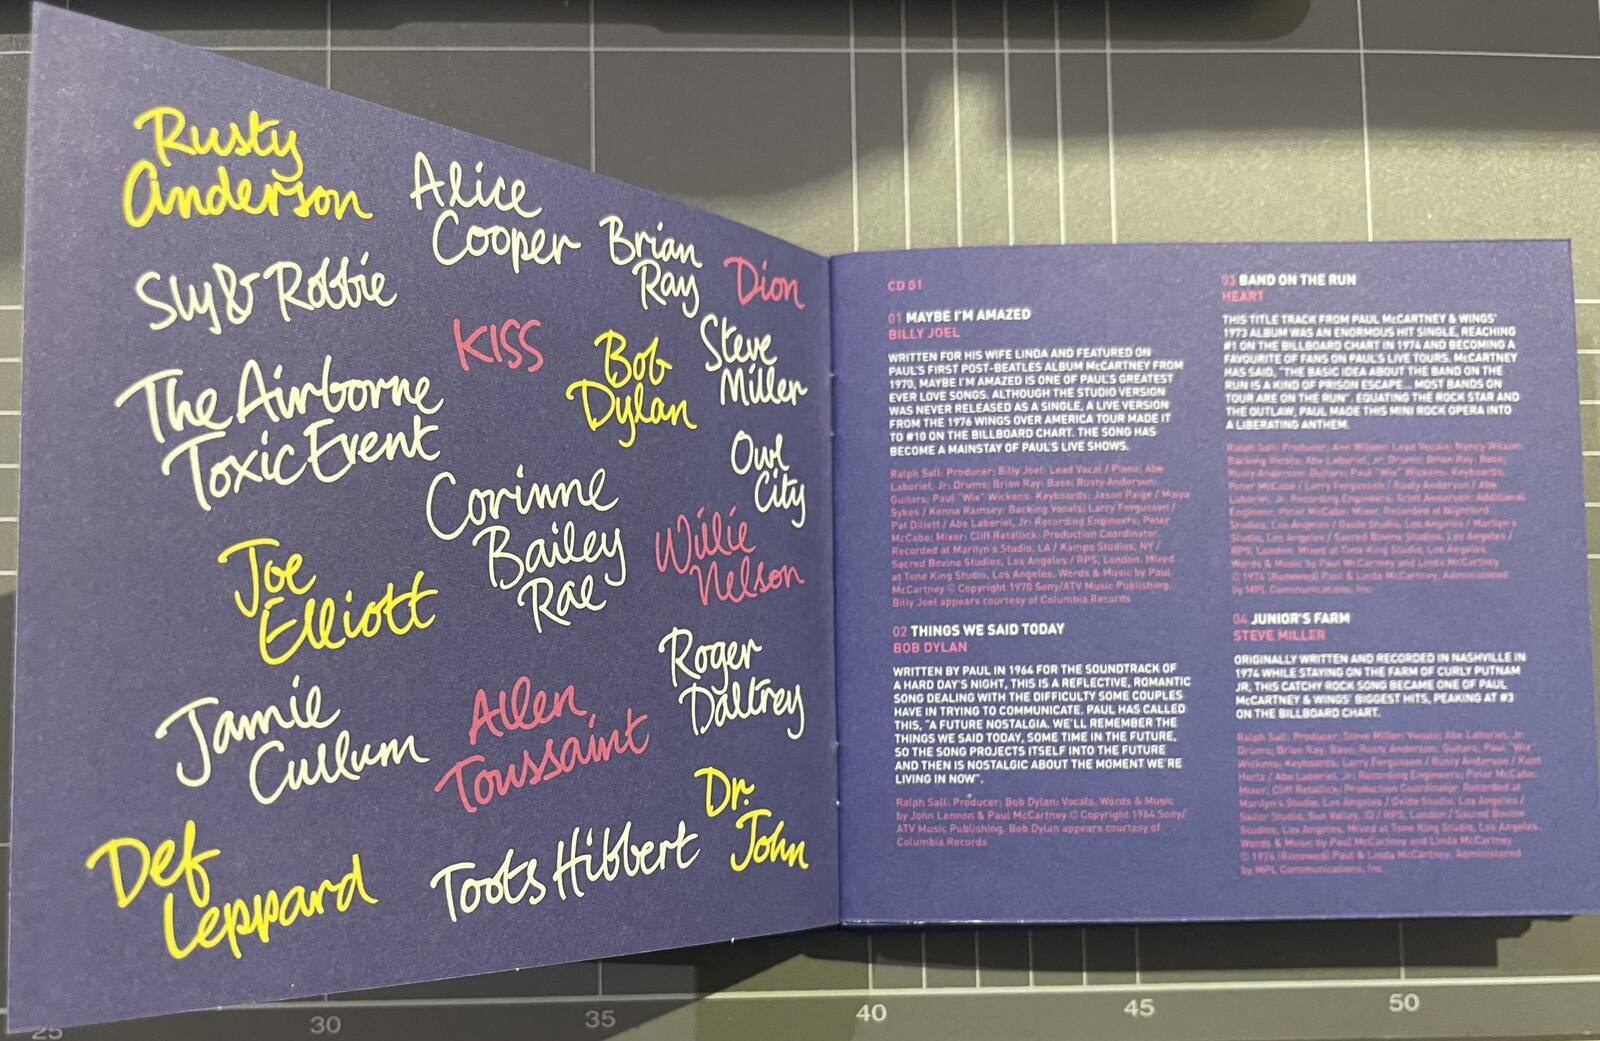 Rusty
Anderson
Alice
Cooper
Brian
Ray
Dion
Sly & Robbie
KISS
Bob
Dylan
Steve
Miller
The Airborne
Toxic Event
Corinne
Bailey
Rae
Owl
City
Willie
Nelson
Joe
Elliott
Roger
Daltrey
Jamie
Cullum
Allen
Toussaint
Dr.
John
Def
Leppard
Toots Hibbert
CD 01
01 MAYBE I'M AMAZED
BILLY JOEL
WRITTEN FOR HIS WIFE LINDA AND FEATURED ON
PAUL'S FIRST POST-BEATLES ALBUM McCARTNEY FROM
1970, MAYBE I'M AMAZED IS ONE OF PAUL'S GREATEST
EVER LOVE SONGS. ALTHOUGH THE STUDIO VERSION
WAS NEVER RELEASED AS A SINGLE, A LIVE VERSION
FROM THE 1976 WINGS OVER AMERICA TOUR MADE IT
TO #10 ON THE BILLBOARD CHART. THE SONG HAS
BECOME A MAINSTAY OF PAUL'S LIVE SHOWS.
Ralph Sall: Producer; Billy Joel: Lead Vocal / Piano; Abe
Laboriel, Jr: Drums; Brian Ray: Bass; Rusty Anderson:
Guitars; Paul "Wix" Wickens: Keyboards; Jason Paige / Maiya
Sykes / Kenna Ramsey: Backing Vocals; Larry Ferguson /
Pat Dillett / Abe Laboriel, Jr: Recording Engineers; Peter
McCabe: Mixer; Cliff Retallick: Production Coordinator.
Recorded at Marilyn's Studio, LA / Kampo Studios, NY /
Sacred Bovine Studios, Los Angeles / RPS, London. Mixed
at Tone King Studio, Los Angeles. Words & Music by Paul
McCartney © Copyright 1970 Sony/ATV Music Publishing.
Billy Joel appears courtesy of Columbia Records
02 THINGS WE SAID TODAY
BOB DYLAN
WRITTEN BY PAUL IN 1964 FOR THE SOUNDTRACK OF
A HARD DAY'S NIGHT, THIS IS A REFLECTIVE, ROMANTIC
SONG DEALING WITH THE DIFFICULTY SOME COUPLES
HAVE IN TRYING TO COMMUNICATE. PAUL HAS CALLED
THIS, "A FUTURE NOSTALGIA. WE'LL REMEMBER THE
THINGS WE SAID TODAY, SOME TIME IN THE FUTURE,
SO THE SONG PROJECTS ITSELF INTO THE FUTURE
AND THEN IS NOSTALGIC ABOUT THE MOMENT WE'RE
LIVING IN NOW".
Ralph Sall: Producer; Bob Dylan: Vocals. Words & Music
by John Lennon & Paul McCartney © Copyright 1964 Sony/
ATV Music Publishing. Bob Dylan appears courtesy of
Columbia Records
03 BAND ON THE RUN
HEART
THIS TITLE TRACK FROM PAUL McCARTNEY & WINGS'
1973 ALBUM WAS AN ENORMOUS HIT SINGLE, REACHING
#1 ON THE BILLBOARD CHART IN 1974 AND BECOMING A
FAVOURITE OF FANS ON PAUL'S LIVE TOURS. McCARTNEY
HAS SAID, "THE BASIC IDEA ABOUT THE BAND ON THE
RUN IS A KIND OF PRISON ESCAPE... MOST BANDS ON
TOUR ARE ON THE RUN". EQUATING THE ROCK STAR AND
THE OUTLAW, PAUL MADE THIS MINI ROCK OPERA INTO
A LIBERATING ANTHEM.
Ralph Sall: Producer; Ann Wilson: Lead Vocals; Nancy Wilson:
Backing Vocals; Abe Laboriel, Jr: Drums; Brian Ray: Bass;
Rusty Anderson: Guitars; Paul "Wix" Wickens: Keyboards;
Peter McCabe / Larry Ferguson / Rusty Anderson / Abe
Laboriel, Jr: Recording Engineers; Scott Anderson: Additional
Engineer; Peter McCabe: Mixer. Recorded at
Studios, Los Angeles / Oxide Studio, Los Angeles / Marilyn's
Studio, Los Angeles / Sacred Bovine Studios, Los Angeles /
RPS, London. Mixed at Tone King Studio, Los Angeles.
Words & Music by Paul McCartney and Linda McCartney
© 1974 (Renewed) Paul & Linda McCartney. Administered
by MPL Communications, Inc.
04 JUNIOR'S FARM
STEVE MILLER
ORIGINALLY WRITTEN AND RECORDED IN NASHVILLE IN
1974 WHILE STAYING ON THE FARM OF CURLY PUTNAM
JR, THIS CATCHY ROCK SONG BECAME ONE OF PAUL
McCARTNEY & WINGS' BIGGEST HITS, PEAKING AT #3
ON THE BILLBOARD CHART.
Ralph Sall: Producer; Steve Miller: Vocals; Abe Laboriel, Jr:
Drums; Brian Ray: Bass; Rusty Anderson: Guitars; Paul "Wix"
Wickens: Keyboards; Larry Ferguson / Rusty Anderson / Kent
Hertz / Abe Laboriel, Jr: Recording Engineers; Peter McCabe:
Mixer; Cliff Retallick: Production Coordinator. Recorded at
Marilyn's Studio, Los Angeles / Oxide Studio, Los Angeles /
Studio, Sun Valley, ID / RPS, London / Sacred Bovine
Studios, Los Angeles. Mixed at Tone King Studio, Los Angeles.
Words & Music by Paul McCartney and Linda McCartney
© 1974 (Renewed) Paul & Linda McCartney. Administered
by MPL Communications, Inc.
25 30 35 40 45 50